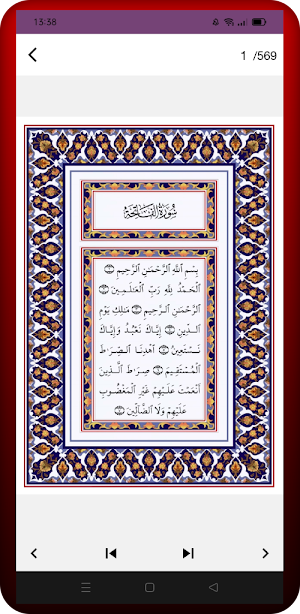 13:38
1 /569
سُورَةُ الفَاتِحَةِ
بِسْمِ ٱللَّهِ ٱلرَّحْمَـٰنِ ٱلرَّحِيمِ ۝
ٱلْحَمْدُ لِلَّهِ رَبِّ ٱلْعَـٰلَمِينَ ۝
ٱلرَّحْمَـٰنِ ٱلرَّحِيمِ ۝ مَـٰلِكِ يَوْمِ
ٱلدِّينِ ۝ إِيَّاكَ نَعْبُدُ وَإِيَّاكَ
نَسْتَعِينُ ۝ ٱهْدِنَا ٱلصِّرَٰطَ
ٱلْمُسْتَقِيمَ ۝ صِرَٰطَ ٱلَّذِينَ
أَنْعَمْتَ عَلَيْهِمْ غَيْرِ ٱلْمَغْضُوبِ
عَلَيْهِمْ وَلَا ٱلضَّآلِّينَ ۝